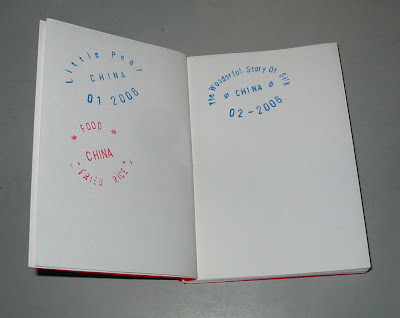 Little Pear
CHINA
01 2008
* FOOD *
CHINA
FRIED RICE
The Wonderful Story Of Silk
CHINA
02-2008